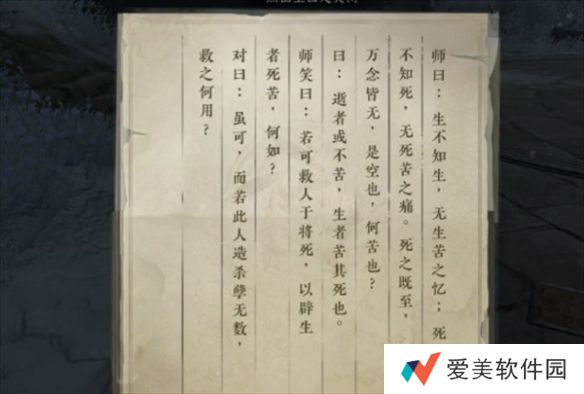 师曰：生不知生，无生苦之忆；死
不知死，无死苦之痛。死之既至，
万念皆无，是空也，何苦也？
曰：逝者或不苦，生者苦其死也。
师笑曰：若可救人于将死，以辟生
者死苦，何如？
对曰：虽可，而若此人造杀孽无数，
救之何用？
爱美软件园